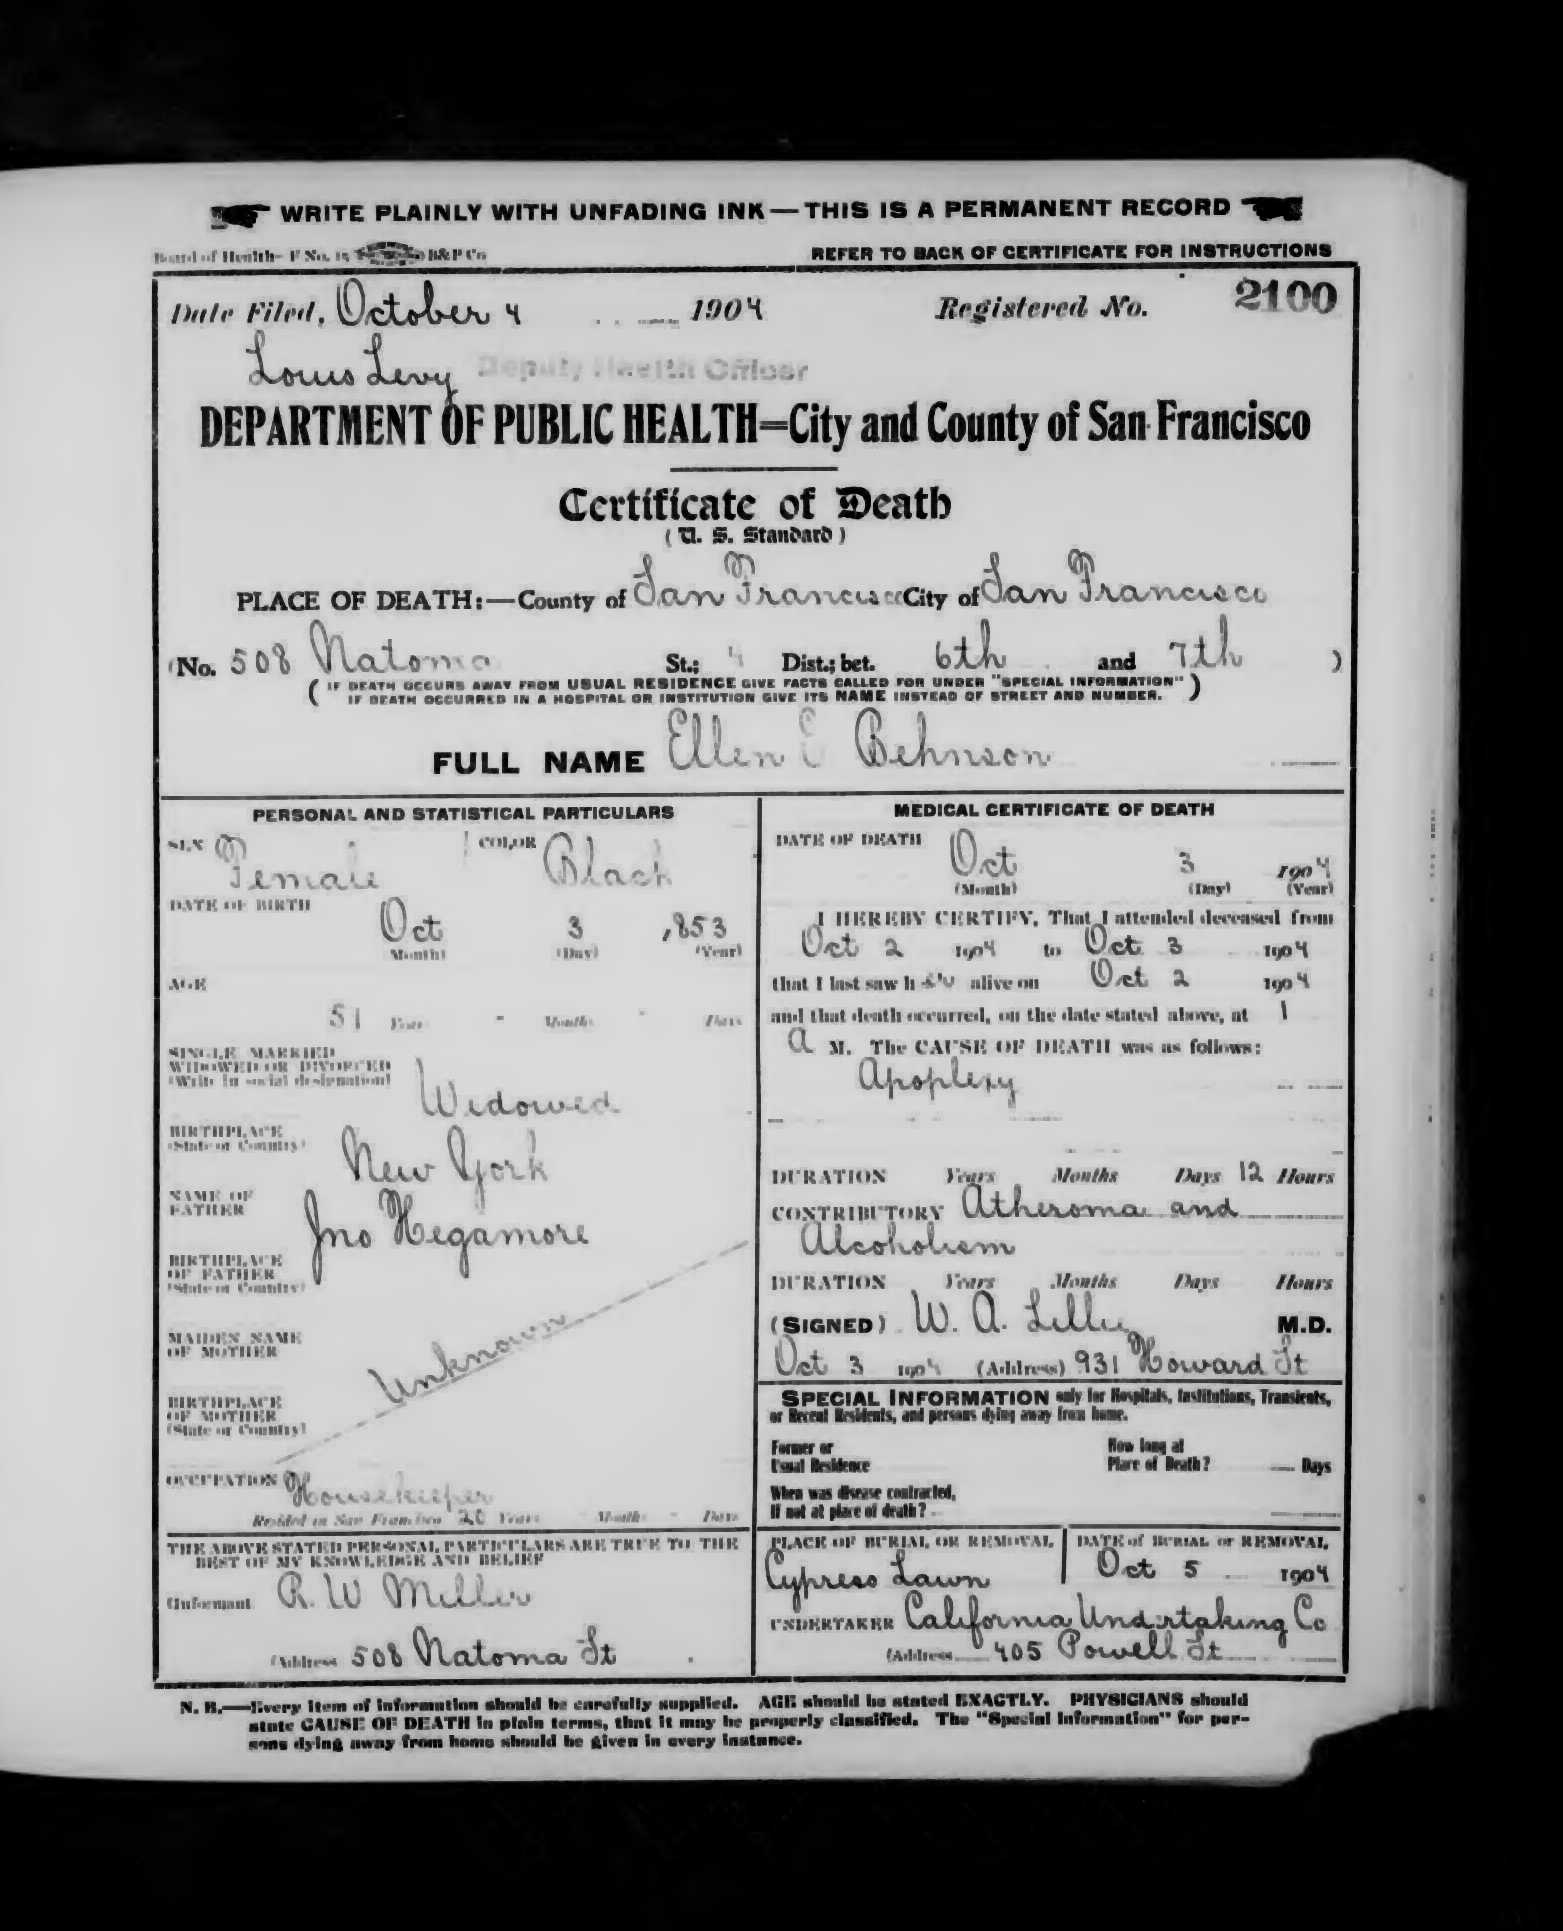 WRITE PLAINLY WITH UNFADING INK—THIS IS A PERMANENT RECORD
Board of Health—F No. 15 B&P Co
REFER TO BACK OF CERTIFICATE FOR INSTRUCTIONS
Date Filed, October 4 1904 Registered No. 2100
Louis Levy Deputy Health Officer
DEPARTMENT OF PUBLIC HEALTH=City and County of San Francisco
Certificate of Death
(U. S. Standard)
PLACE OF DEATH:—County of San Francisco City of San Francisco
(No. 508 Natoma St.; 4 Dist.; bet. 6th and 7th )
(IF DEATH OCCURS AWAY FROM USUAL RESIDENCE GIVE FACTS CALLED FOR UNDER "SPECIAL INFORMATION"
IF DEATH OCCURRED IN A HOSPITAL OR INSTITUTION GIVE ITS NAME INSTEAD OF STREET AND NUMBER.)
FULL NAME Ellen E Behnson
PERSONAL AND STATISTICAL PARTICULARS
SEX Female COLOR Black
DATE OF BIRTH
Oct 3 ,853
(Month) (Day) (Year)
AGE
51 Years - Months - Days
SINGLE MARRIED
WIDOWED OR DIVORCED
(Write in social designation)
Widowed
BIRTHPLACE
(State or Country)
New York
NAME OF
FATHER
Jno Hegamore
BIRTHPLACE
OF FATHER
(State or Country)
MAIDEN NAME
OF MOTHER
Unknown
BIRTHPLACE
OF MOTHER
(State or Country)
OCCUPATION Housekeeper
Resided in San Francisco 20 Years Months - Days
THE ABOVE STATED PERSONAL PARTICULARS ARE TRUE TO THE
BEST OF MY KNOWLEDGE AND BELIEF
(Informant R. W Miller
(Address 508 Natoma St
MEDICAL CERTIFICATE OF DEATH
DATE OF DEATH
Oct 3 1904
(Month) (Day) (Year)
I HEREBY CERTIFY, That I attended deceased from
Oct 2 1904 to Oct 3 1904
that I last saw her alive on Oct 2 1904
and that death occurred, on the date stated above, at 1
a M. The CAUSE OF DEATH was as follows:
Apoplexy
DURATION Years Months Days 12 Hours
CONTRIBUTORY Atheroma and
Alcoholism
DURATION Years Months Days Hours
(SIGNED) W. A. Lillie M.D.
Oct 3 1904 (Address) 931 Howard St
SPECIAL INFORMATION only for Hospitals, Institutions, Transients,
or Recent Residents, and persons dying away from home.
Former or
Usual Residence
How long at
Place of Death? Days
When was disease contracted,
If not at place of death?
PLACE OF BURIAL OR REMOVAL
Cypress Lawn
DATE of BURIAL or REMOVAL
Oct 5 1904
UNDERTAKER California Undertaking Co
(Address 405 Powell St
N. B.—Every item of information should be carefully supplied. AGE should be stated EXACTLY. PHYSICIANS should
state CAUSE OF DEATH in plain terms, that it may be properly classified. The "Special Information" for per-
sons dying away from home should be given in every instance.